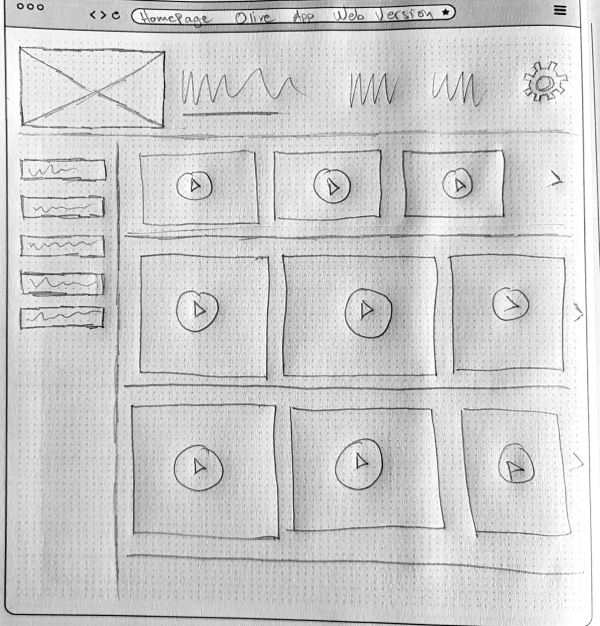 Homepage Olive App Web Version